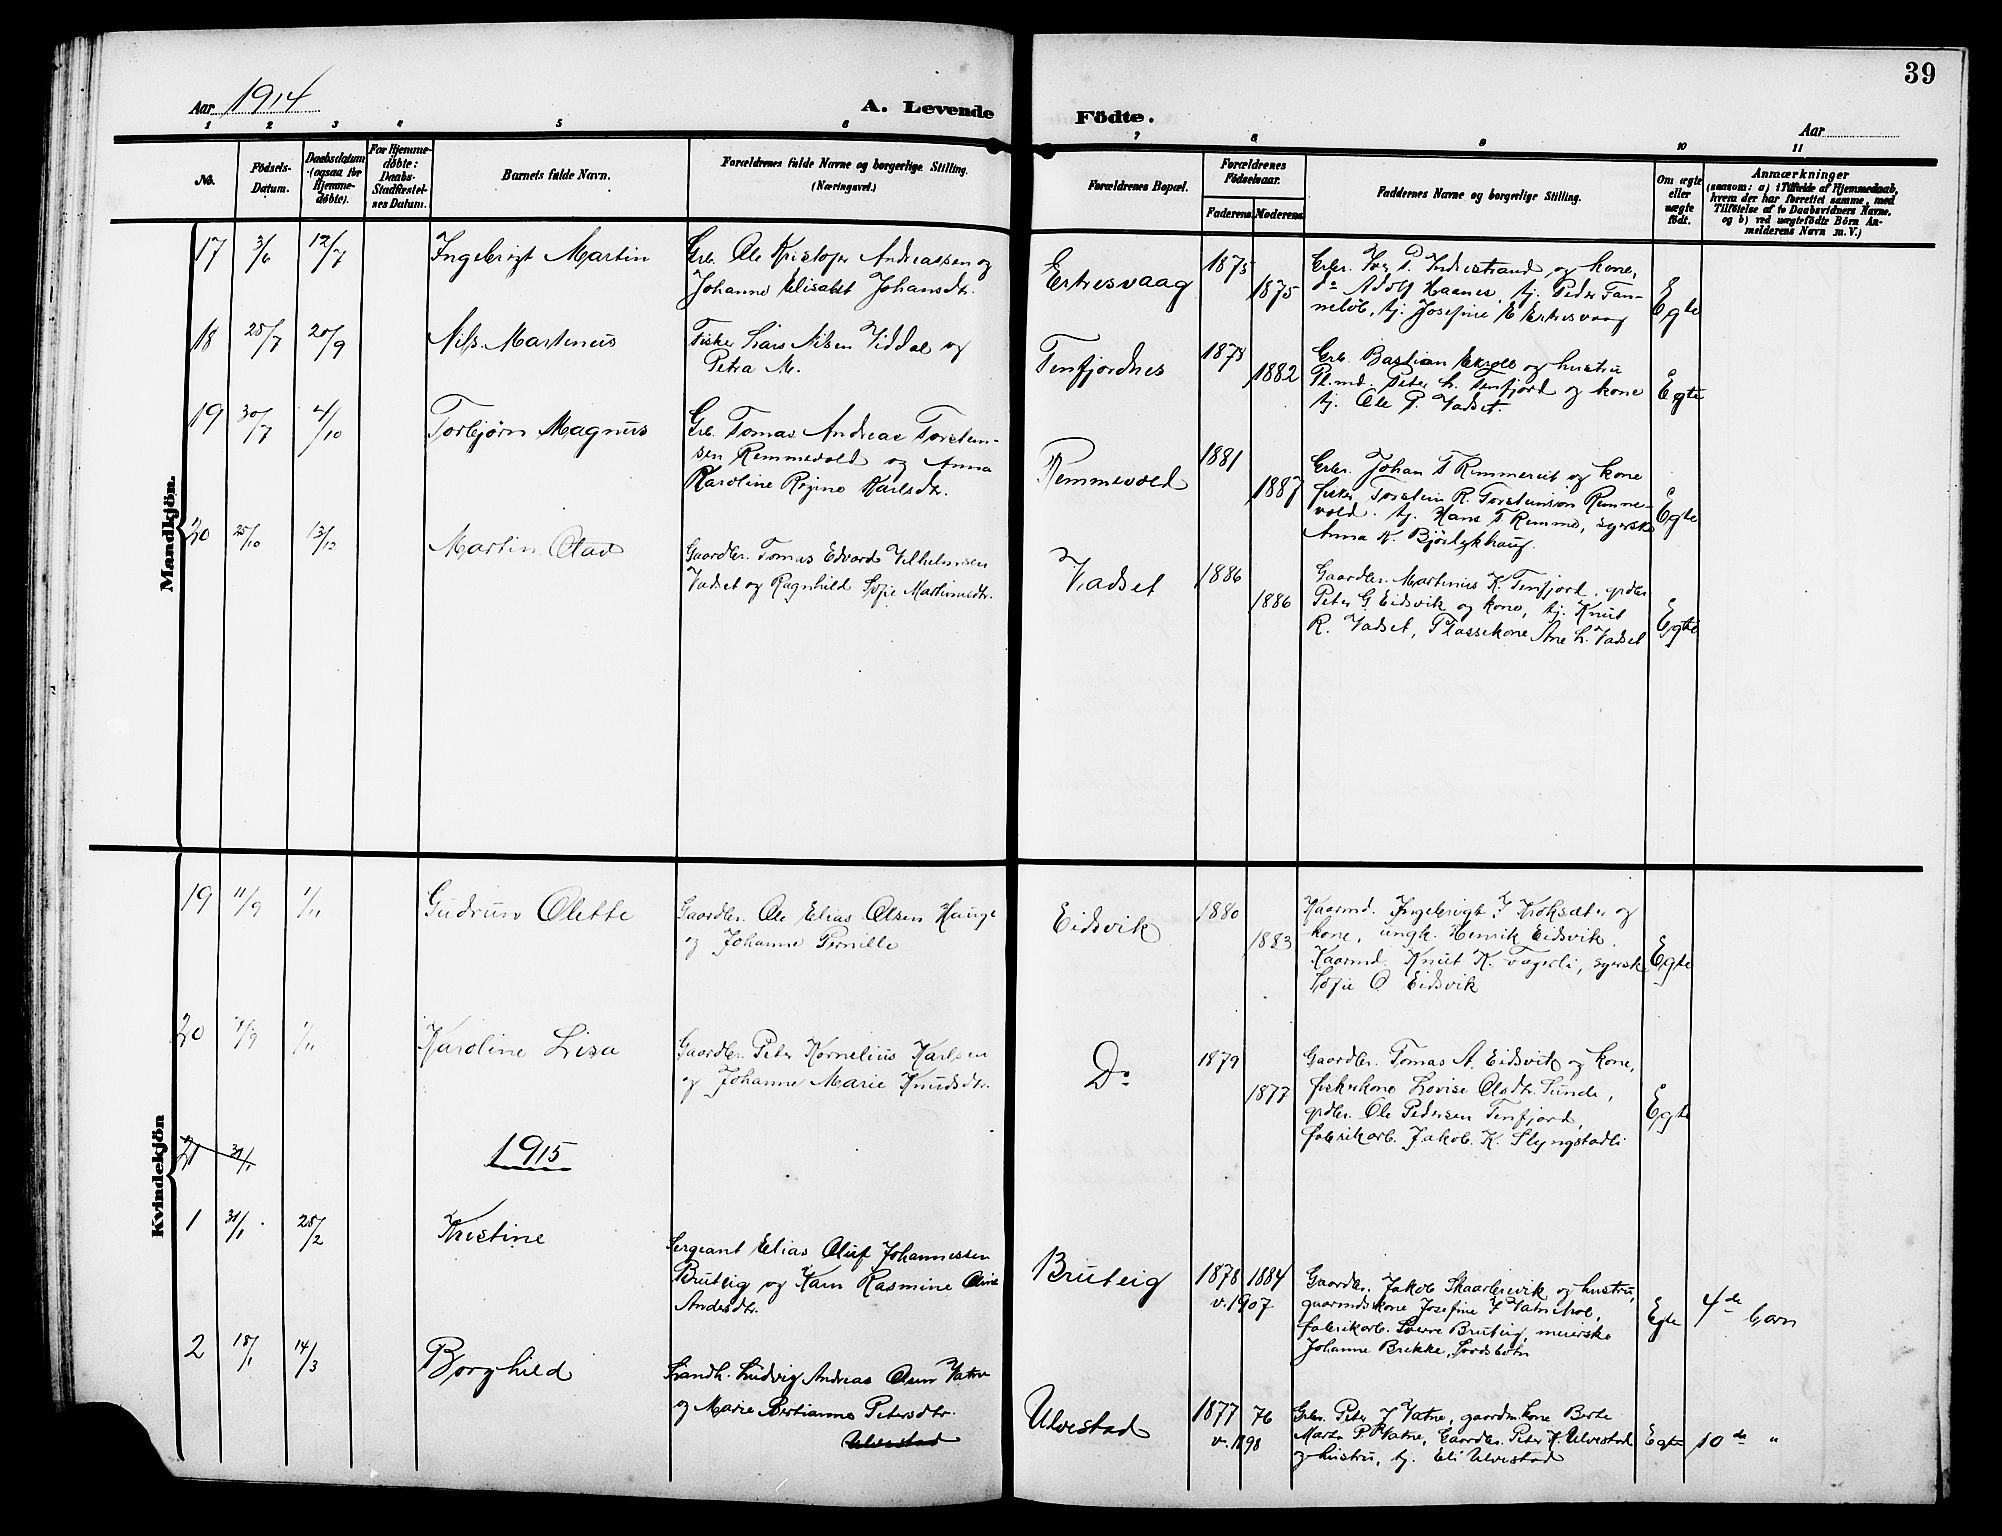 39
Aar 1914
A. Levende Födte.
Aar
1 2 3 4 5 6 7 8 9 10 11
No.
Födsels-
Datum.
Daabsdatum
(ogsaa for
Hjemme-
døbte).
For Hjemme-
døbte:
Daabs-
Stadfæstel-
ses Datum.
Barnets fulde Navn.
Forældrenes fulde Navne og borgerlige Stilling.
(Næringsvei.)
Forældrenes Bopæl.
Forældrenes
Fødselsaar.
Faderens. Moderens.
Faddernes Navne og borgerlige Stilling.
Om ægte
eller
uægte
födt.
Anmærkninger
(saasom: a) i Tilfælde af Hjemmedaab,
hvem der har forrettet samme, med
Tilföielse af to Daabsvidners Navne.
og b) ved uægtefödte Börn An-
melderens Navn m. V.)
Mandkjön.
17 3/6 12/7 Ingebrigt Martin
Grb. Ole Kristofer Andreassen og
Johanne Elisabet Johansdtr.
Ertresvaag
1875
1875
Grbr. Iver P. Indrestrand og kone,
do Adolf Haanes, tj. Peder Tan-
neløb, tj. Josefine E Ertresvaag
Egte
18 25/7 20/9 Nils Martinus
Fisker Lars Nilsen Viddal og
Petra M.
Tenfjordnes
1878
1882
Grb. Bastian Ekroll og hustru
Pl.md. Peter L. Tenfjord og kone
tj. Ole P. Vadset.
Egte
19 30/7 4/10 Torbjørn Magnus
Grb. Tomas Andreas Torstein-
sen Remmevold og Anna
Karoline Regine Karlsdtr.
Remmevold
1881
1887
Grbr. Johan T Remmereit og kone
fisker Torstein R. Torsteinson Remme-
vold. tj. Hans T Remme, syerske
Anna K. Bjørlykhaug.
Egte
20 25/10 13/12 Martin Olad
Gaardbr. Tomas Edvard Vilhelmsen
Vadset og Ragnhild Sofie Martinusdtr.
Vadset
1886
1886
Gaardbr. Martinius K. Tenfjord, grdbr
Peter G. Eidsvik og kone, tj. Knut
R. Vadset, Plassekone Ane L. Vadset
Egte
Kvindekjön
19 11/9 1/11 Gudrun Olette
Gaardbr. Ole Elias Olsen Hauge
og Johanne Pernille
Eidsvik
1880
1883
Kaarmd. Ingebrigt I Kroksæter og
kone, ungk. Henrik Eidsvik.
Kaarmd. Knut K. Fagerli, syersk
Sofie O Eidsvik
Egte
20 7/9 1/11 Karoline Lisa
Gaardbr. Peter Kornelius Karlsen
og Johanne Marie Knudsdtr.
Do
1879
1877
Gaardbr. Tomas A. Eidsvik og kone,
fiskerkone Lovise Olsdtr. Sunde,
grdbr. Ole Pedersen Tenfjord,
fabrikarb. Jakob K. Slyngstadli
Egte
21 31/1
1915
1 31/1 28/2 Kristine
Sergeant Elias Oluf Johannessen
Bruteig og Karn Rasmine Oline
Andersdtr.
Bruteig
1878 1884
v. 1907.
Gaardbr. Jakob Skaarbrevik og hustru,
gaarmdskone Josefine I Vatnehol,
fabrikarb. Sverre Bruteig, meierske
Johanne Brekke, Søvdebotn
Egte
4de barn
2 18/1 14/3 Borghild
Landh. Ludvig Andreas Olsen Vatne
og Marie Bertianne Petersdtr.
Ulvestad
Ulvestad
1877 76
v. 1898
Grbr. Peter J Vatne, gaardm.kone Berte
Marta P. Vatne, Gaardbr. Peter K. Ulvestad
og hustru, tj. Eli Ulvestad
Egte
10de "